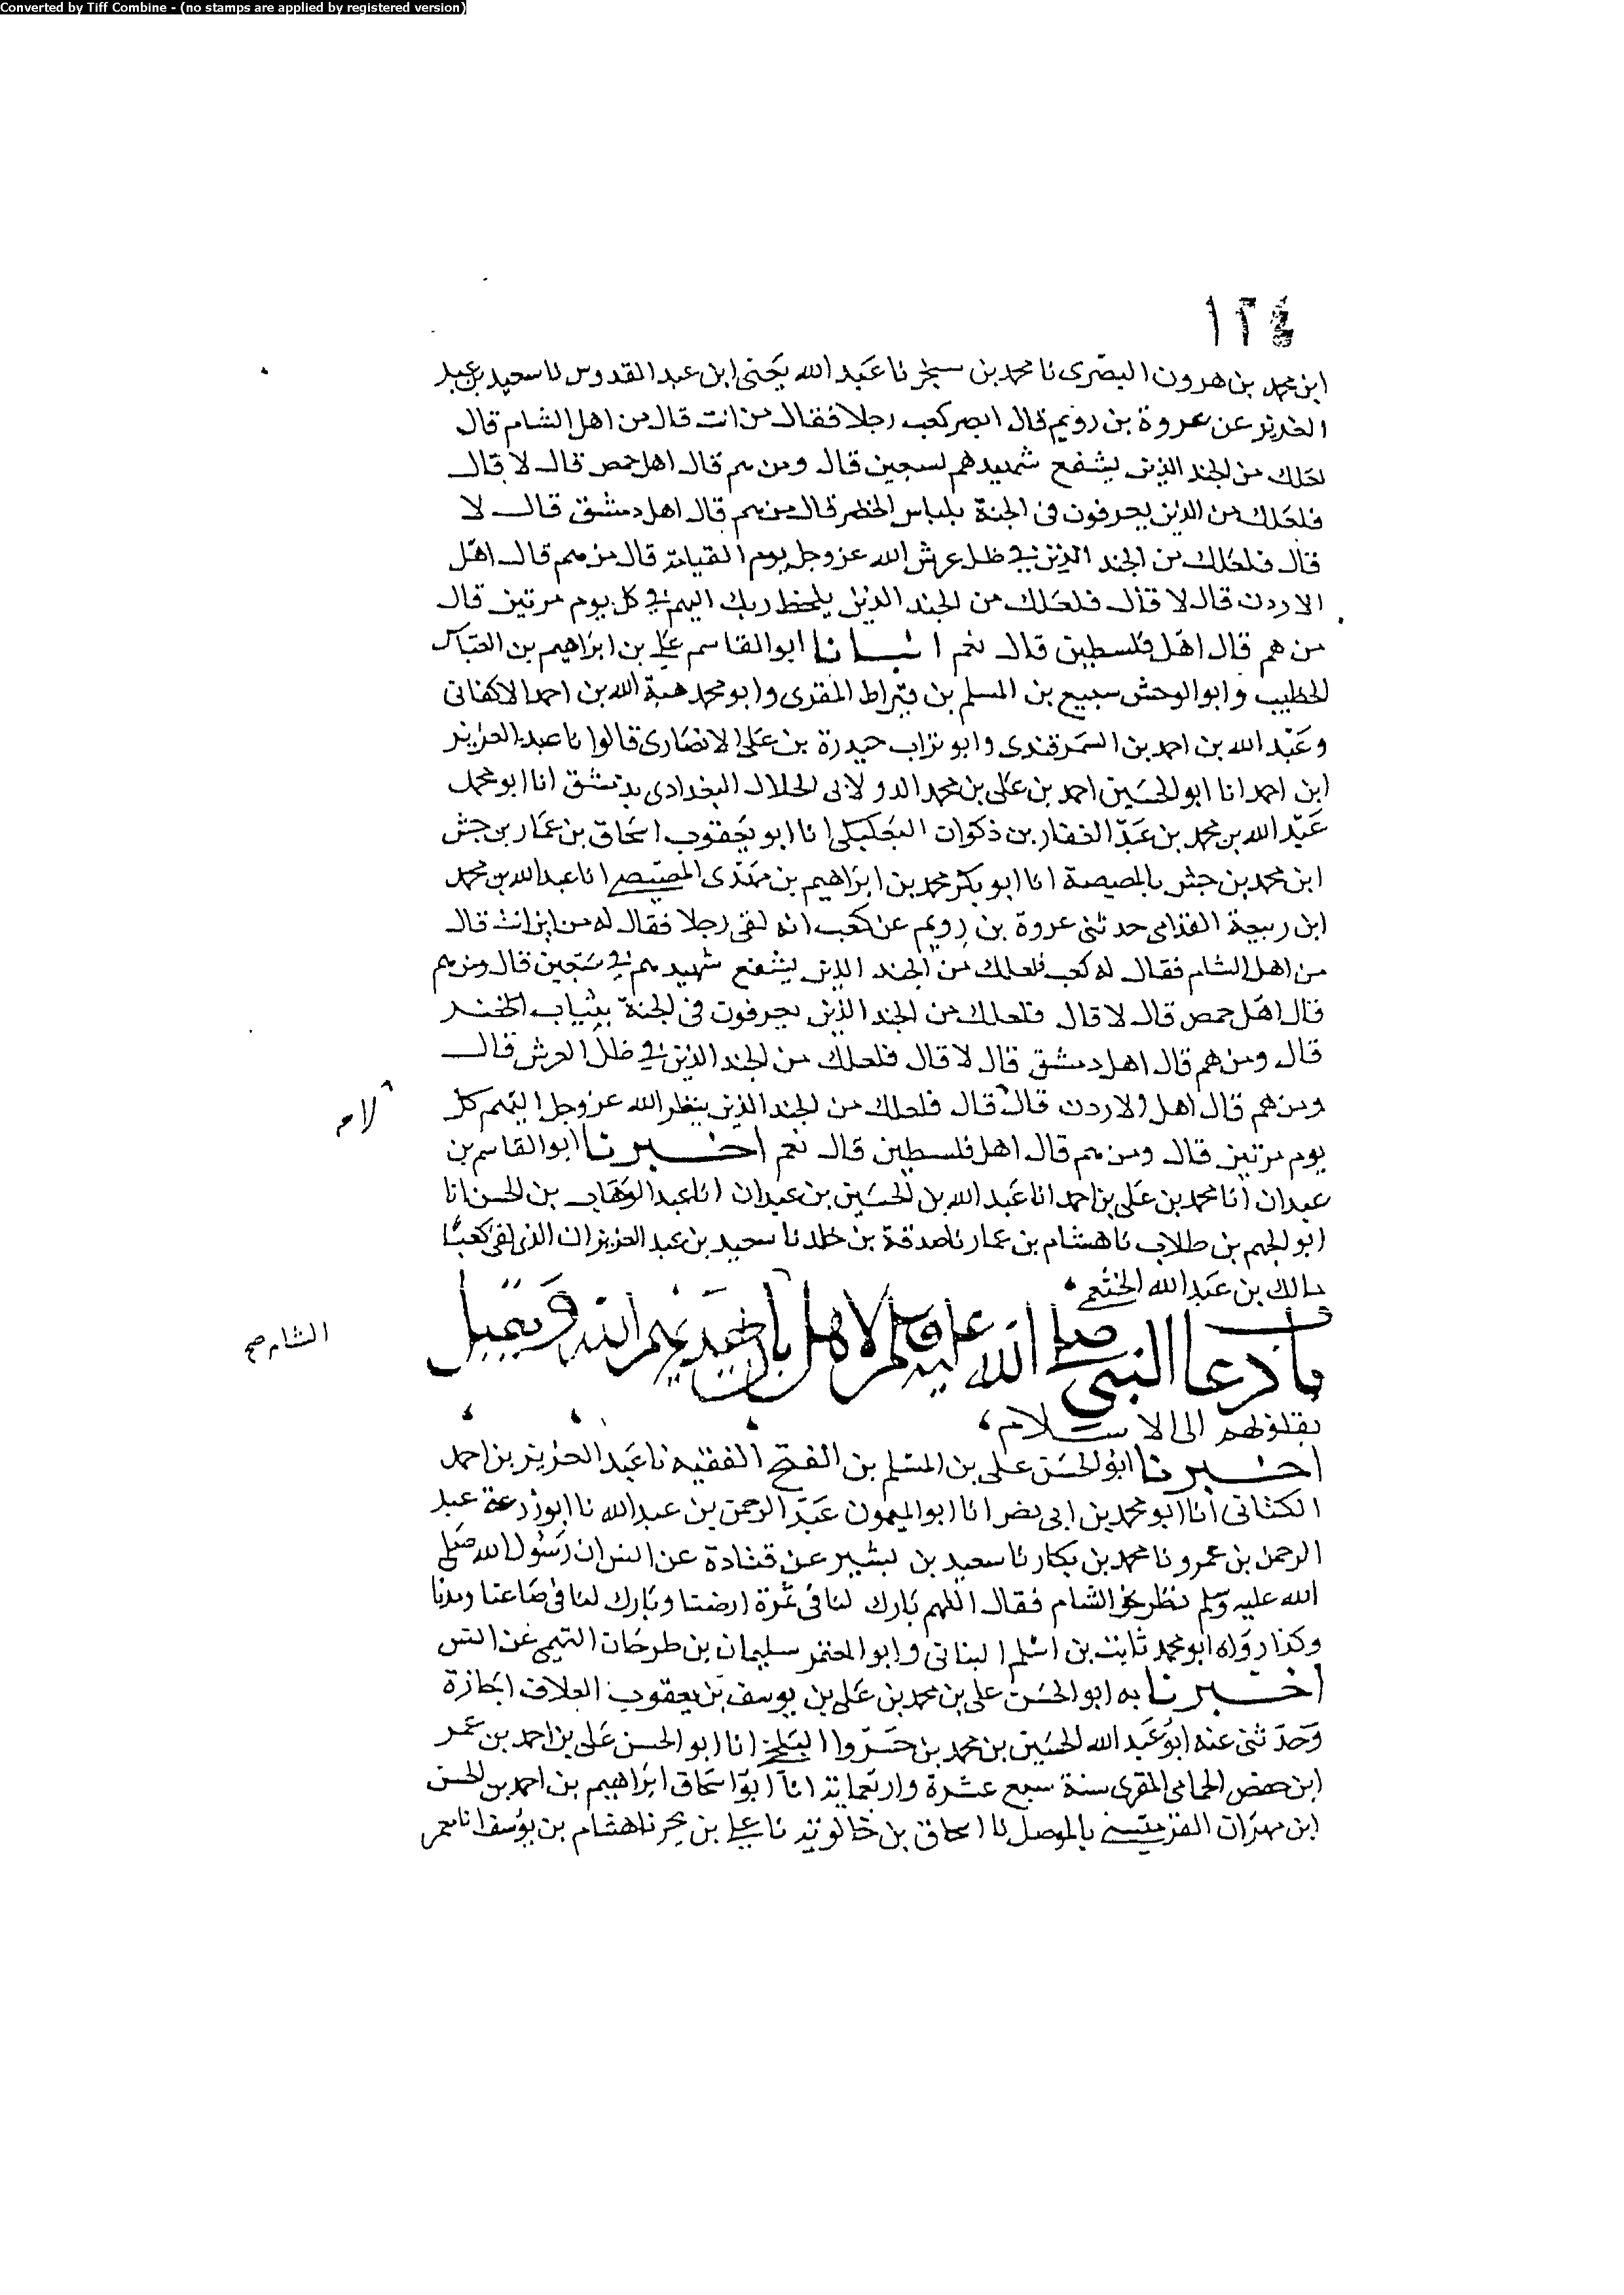 Converted by Tiff Combine - (no stamps are applied by registered version)
١٢٤
ابن محمد بن هرون البصرى نا محمد بن سنجر نا عبد الله يعنى ابن عبد القدوس نا سعيد بن عبد
العزيز عن عروة بن رويم قال ابصر كعب رجلا فقال من انت قال من اهل الشام قال
لعلك من الجند الذين يشفع شهيدهم لسبعين قال ومن هم قال اهل حمص قال لا قال
فلعلك من الذين يعرفون فى الجنة بلباس الخضر قال من هم قال اهل دمشق قال لا
قال فلعلك من الجند الذين في ظل عرش الله عز وجل يوم القيامة قال من هم قال اهل
الاردن قال لا قال فلعلك من الجند الذين يلحظ ربك اليهم في كل يوم مرتين قال
من هم قال اهل فلسطين قال نعم انبانا ابو القاسم علي بن ابراهيم بن العباس
الخطيب وابو الوحش سبيع بن المسلم بن قيراط المقرى وابو محمد هبة الله بن احمد الاكفانى
وعبد الله بن احمد بن السمرقندى وابو تراب حيدرة بن على الانصارى قالوا نا عبد العزيز
ابن احمد انا ابو الحسين احمد بن على بن محمد الدولابى الخلال البغدادى بدمشق انا ابو محمد
عبد الله بن محمد بن عبد الغفار بن ذكوان البعلبكى انا ابو يعقوب اسحاق بن عمار بن جش
ابن محمد بن جش بالمصيصة انا ابو بكر محمد بن ابراهيم بن مهدى المصيصى انا عبد الله بن محمد
ابن ربيعة القدامى حدثنى عروة بن رويم عن كعب انه لقى رجلا فقال له من اين انت قال
من اهل الشام فقال له كعب فلعلك من الجند الذين يشفع شهيدهم في سبعين قال ومن هم
قال اهل حمص قال لا قال فلعلك من الجند الذين يعرفون فى الجنة بثياب الخضر
قال ومن هم قال اهل دمشق قال لا قال فلعلك من الجند الذين في ظل العرش قال
ومن هم قال اهل الاردن قال قال فلعلك من الجند الذين ينظر الله عز وجل اليهم كل
لا
يوم مرتين قال ومن هم قال اهل فلسطين قال نعم اخبرنا ابو القاسم بن
عبدان انا محمد بن على بن احمد انا عبد الله بن الحسين بن عبدان انا عبد الوهاب بن الحسن انا
ابو الجهم بن طلاب نا هشام بن عمار نا صدقة بن خلد نا سعيد بن عبد العزيز ان الذى لقى كعبا
مالك بن عبد الله الخثعمي
باب دعا النبي صلى الله عليه وسلم لاهل بان يهديهم الله ويقبل
الشام صح
بقلوبهم الى الاسلام
اخبرنا ابو الحسن على بن المسلم بن الفتح الفقيه نا عبد العزيز بن احمد
الكتانى انا ابو محمد بن ابى نصر انا ابو الميمون عبد الرحمن بن عبد الله نا ابو زرعة عبد
الرحمن بن عمرو نا محمد بن بكار نا سعيد بن بشير عن قتادة عن انس ان رسول الله صلى
الله عليه وسلم نظر نحو الشام فقال اللهم بارك لنا فى ثمرة ارضنا وبارك لنا فى صاعنا ومدنا
وكذا رواه ابو محمد ثابت بن اسلم البنانى وابو المعتمر سليمان بن طرخان التيمى عن انس
اخبرنا به ابو الحسن على بن محمد بن على بن يوسف بن يعقوب العلاف اجازة
وحدثنى عنه ابو عبد الله الحسين بن محمد بن خسروا البلخي انا ابو الحسن على بن احمد بن عمر
ابن حفص الحمامى المقرى سنة سبع عشرة واربعماية انا ابو اسحاق ابراهيم بن احمد بن الحسن
ابن مهران القرميسينى بالموصل نا اسحاق بن خالويه نا علي بن بحر نا هشام بن يوسف انا معمر